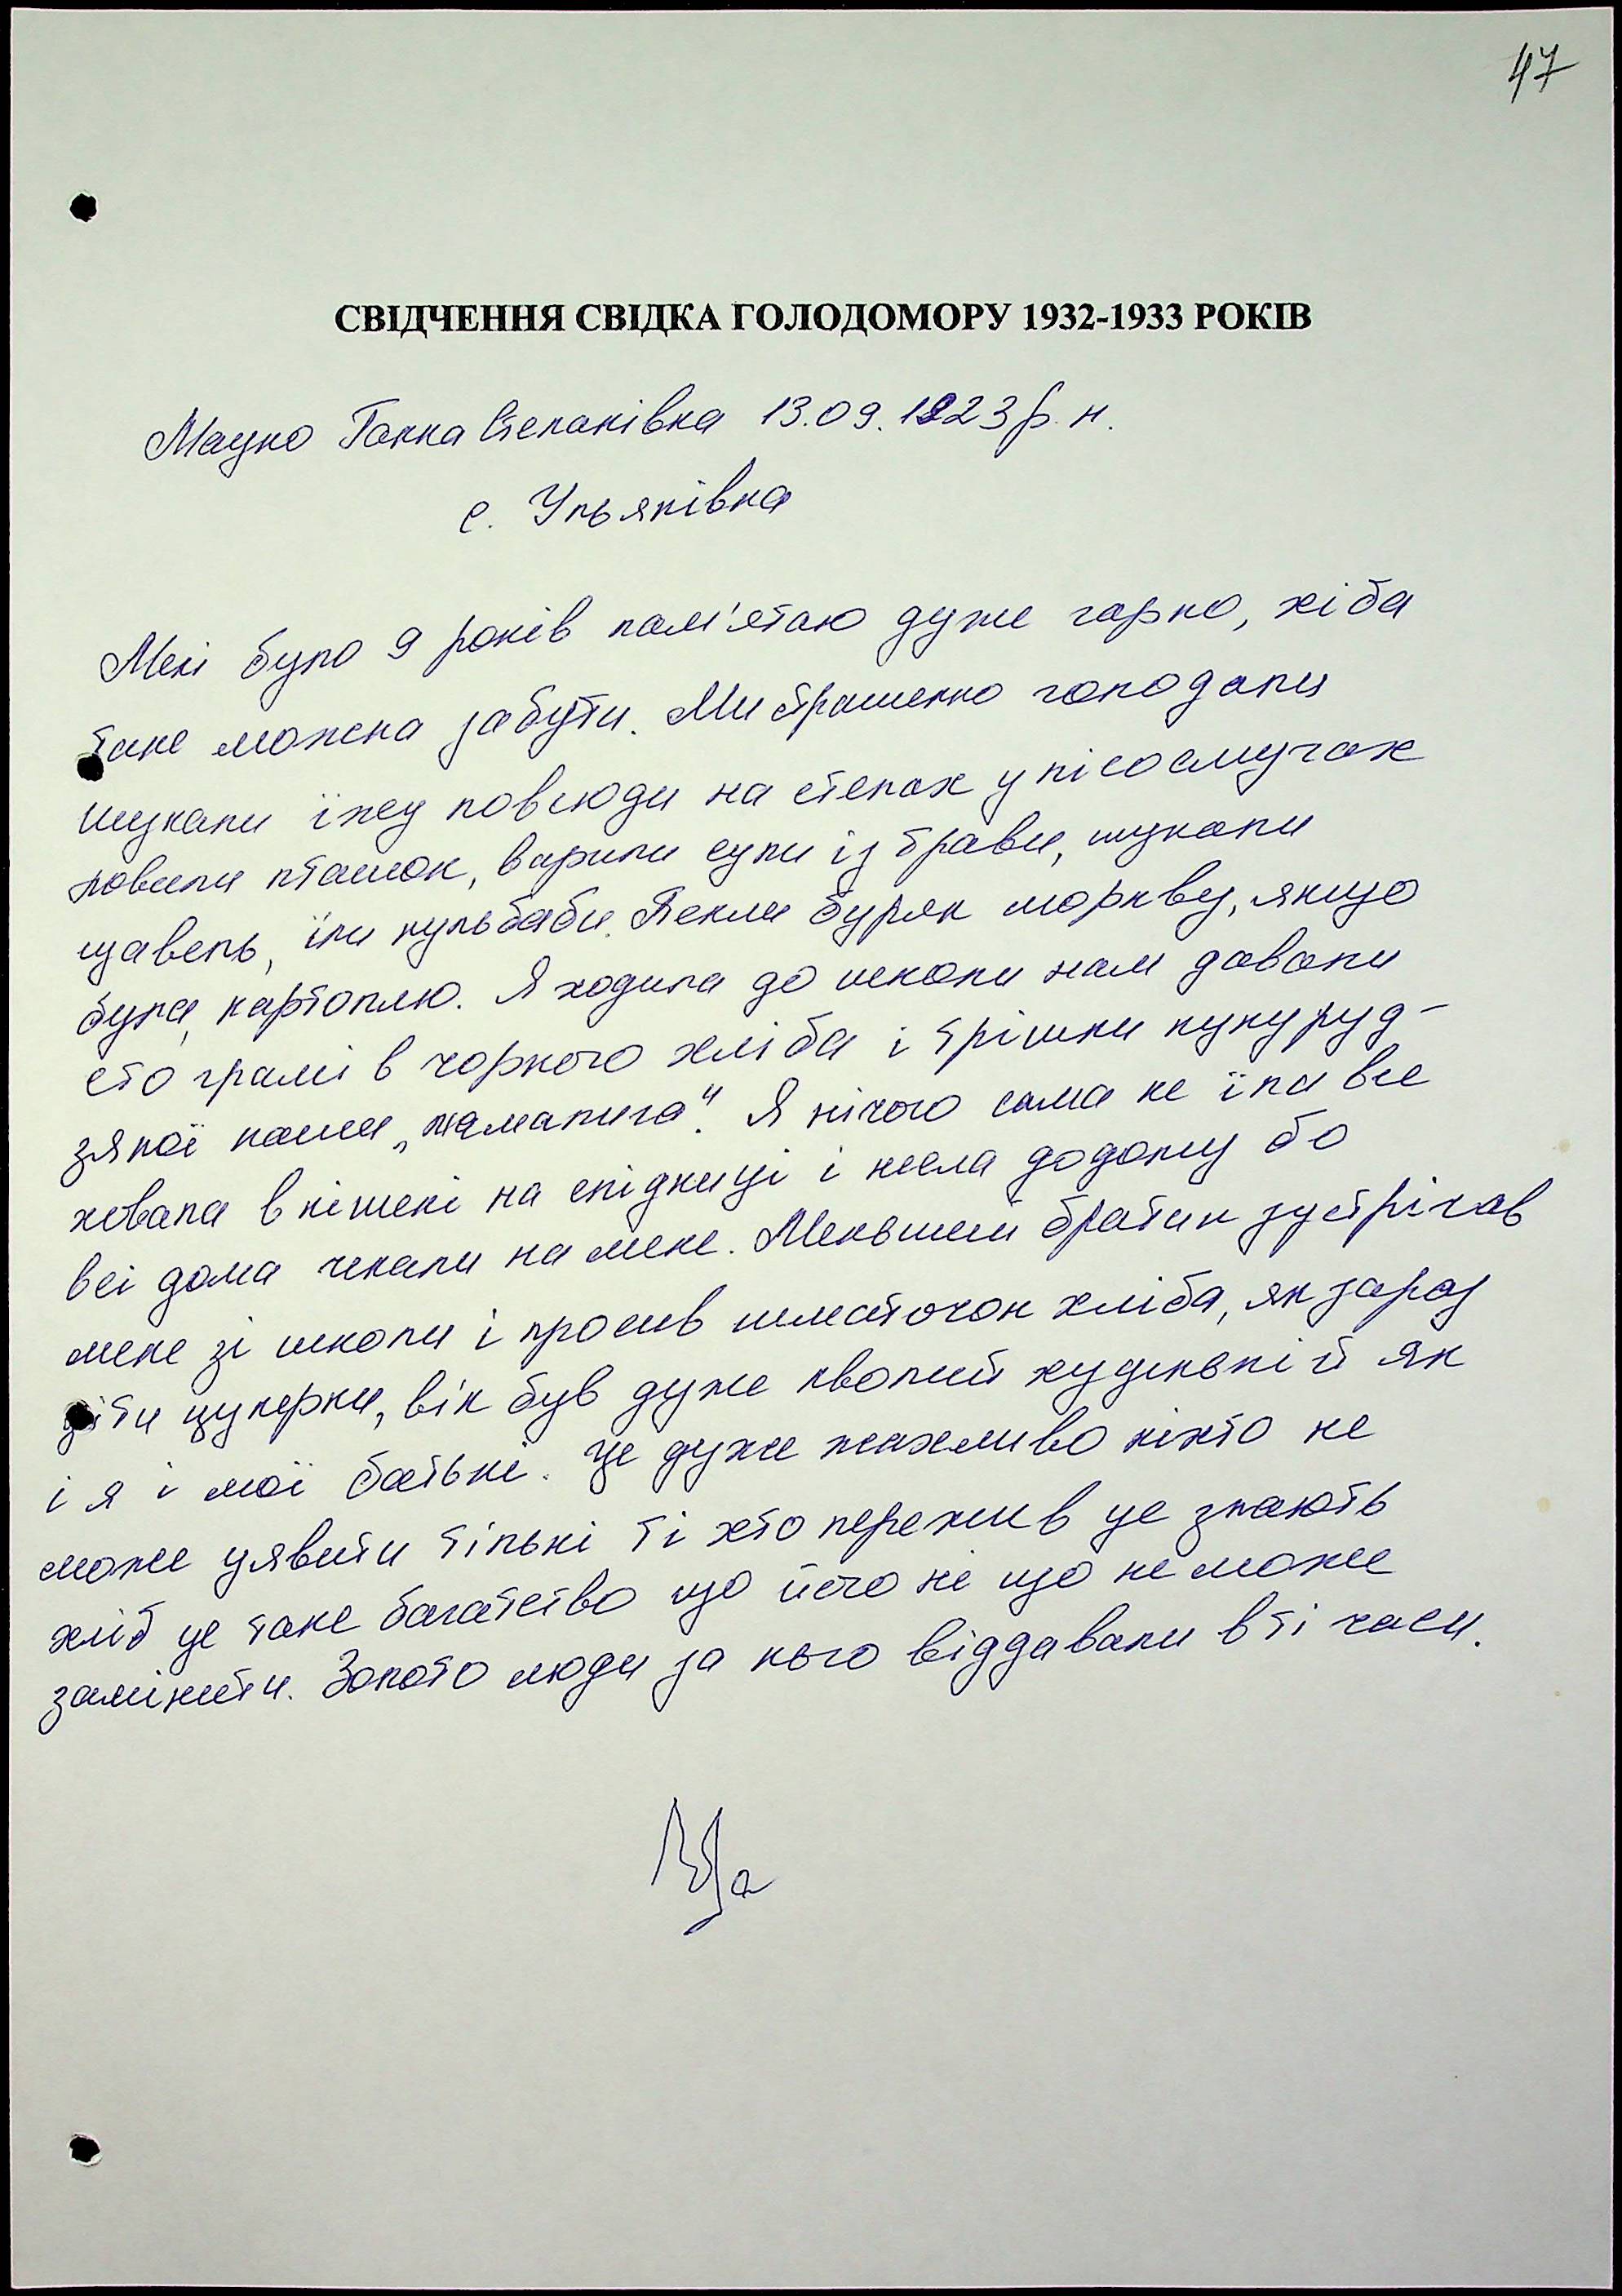 47
СВІДЧЕННЯ СВІДКА ГОЛОДОМОРУ 1932-1933 РОКІВ
Мацко Ганна Степанівна 13.09.1923 р. н.
с. Ульянівка
Мені було 9 років пам'ятаю дуже гарно, хіба
таке можна забути. Ми страшенно голодали
шукали їжу повсюди на степах у лісосмугах
ловили пташок, варили супи із трави, шукали
щавель, їли кульбаби. Пекли буряк моркву, якщо
була, картоплю. Я ходила до школи нам давали
сто грамів чорного хліба і трішки кукуруд-
зяної каши „мамалига". Я нічого сама не їла все
ховала в кішені на спідниці і несла додому бо
всі дома чекали на мене. Меньший братик зустрічав
мене зі школи і просив шматочок хліба, як зараз
діти цукерки, він був дуже кволий худенький як
і я і мої батькі. Це дуже жахливо ніхто не
може уявити тількі ті хто пережив це знають
хліб це таке багатство що його ні що не може
замінити. Золото люди за нього віддавали в ті часи.